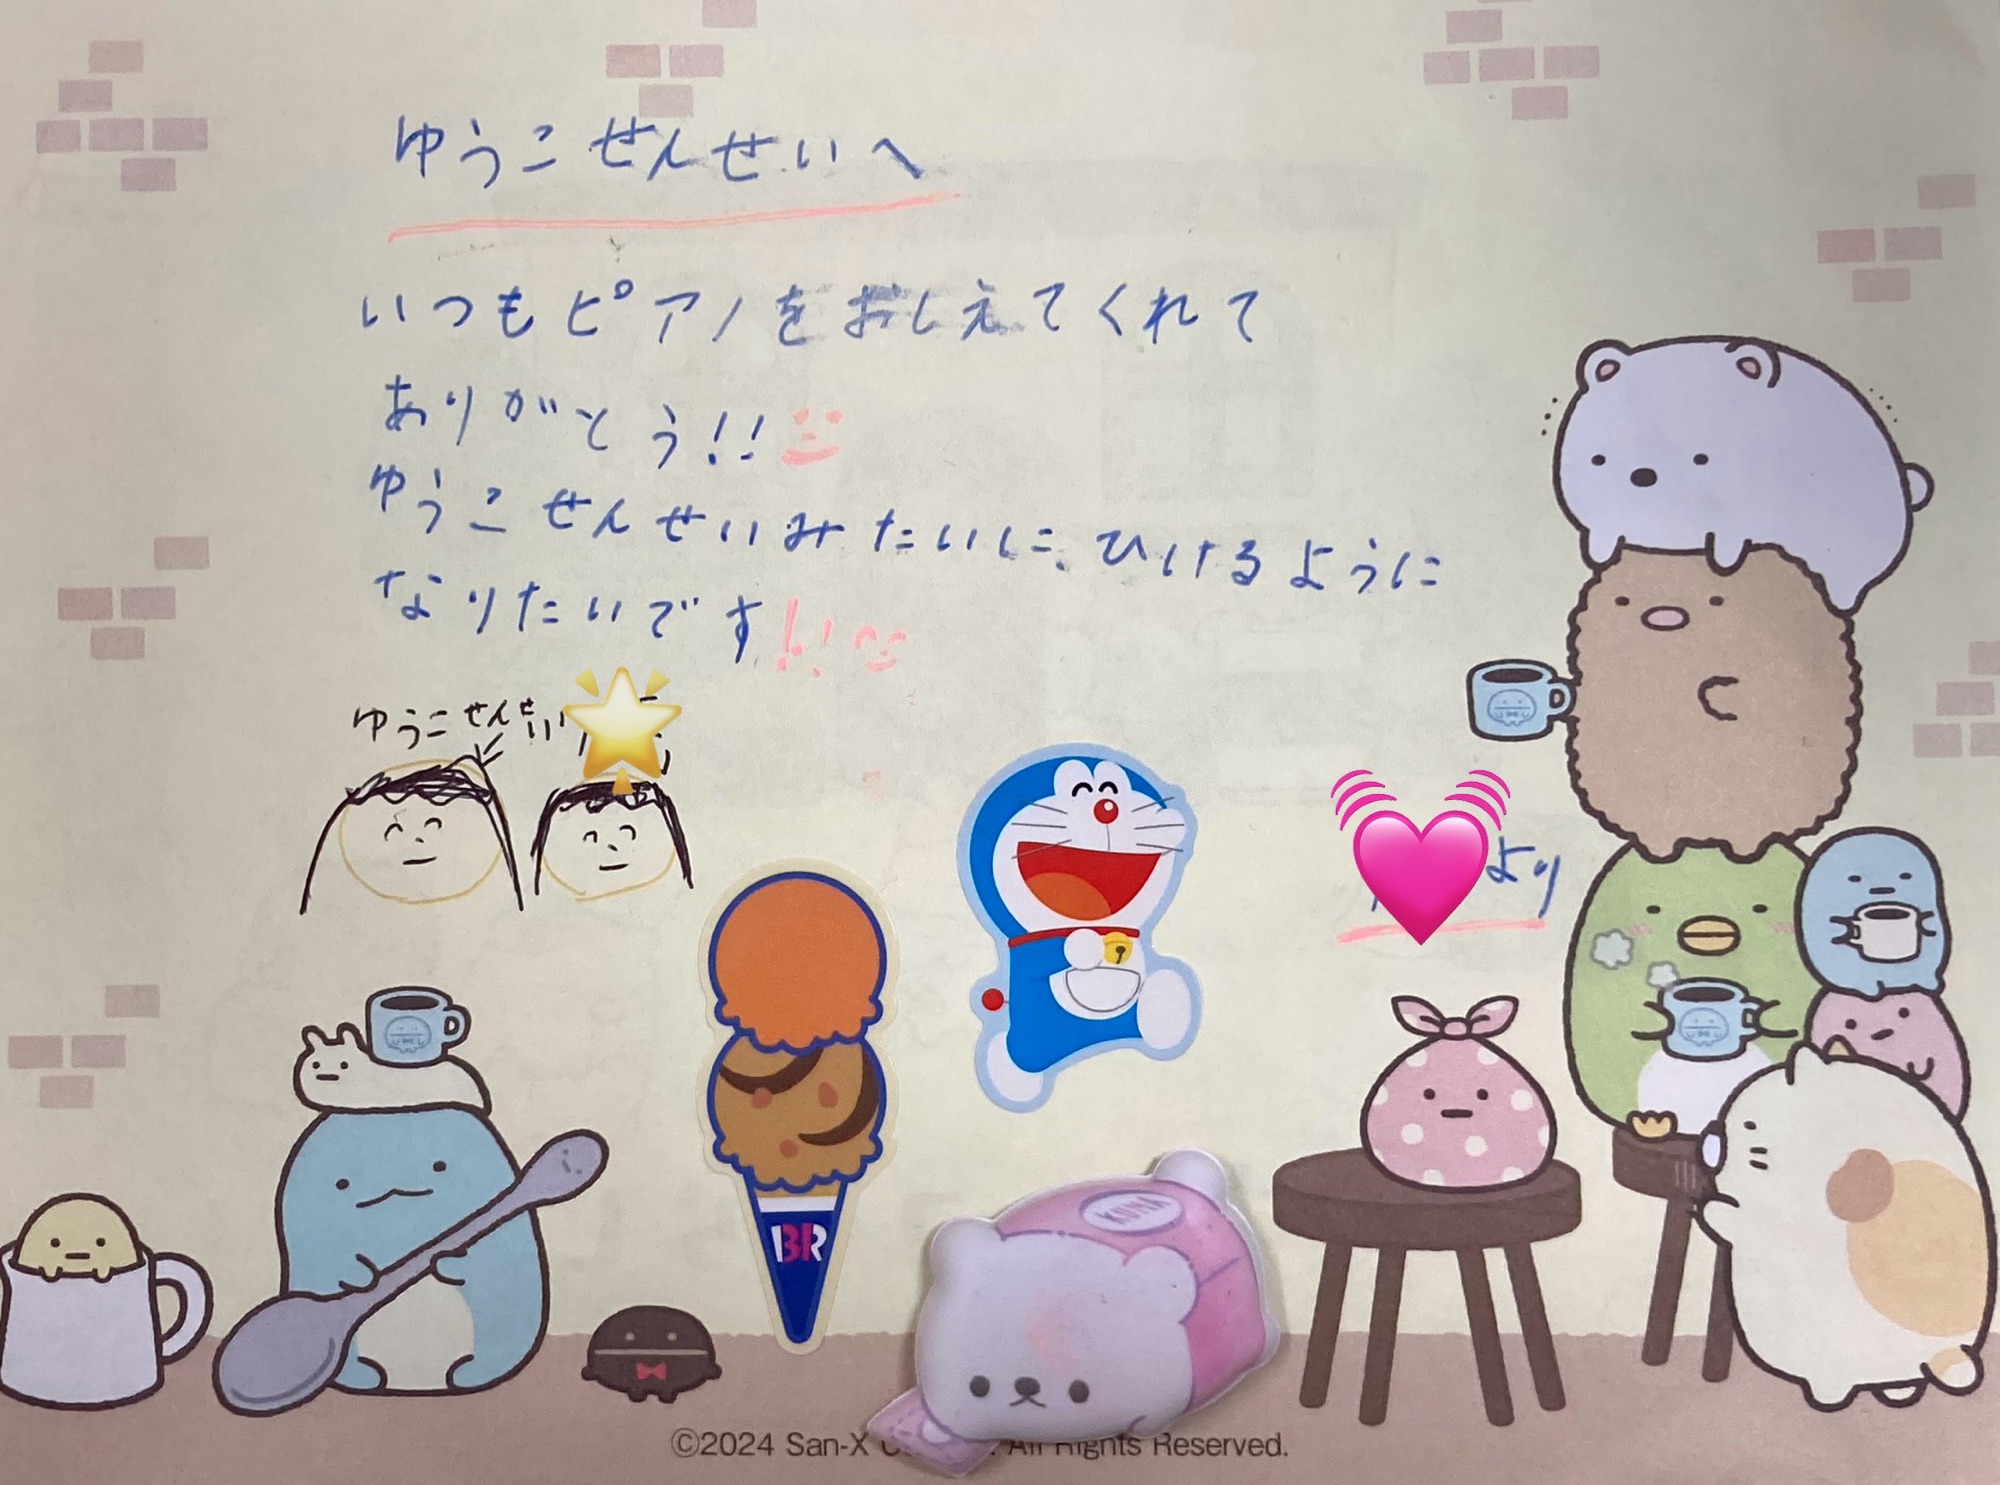 ゆうこせんせいへ
いつもピアノをおしえてくれて
ありがとう!!
ゆうこせんせいみたいに、ひけるように
なりたいです!!
ゆうこせんせい
より
BR
KUMA
©2024 San-X All Rights Reserved.